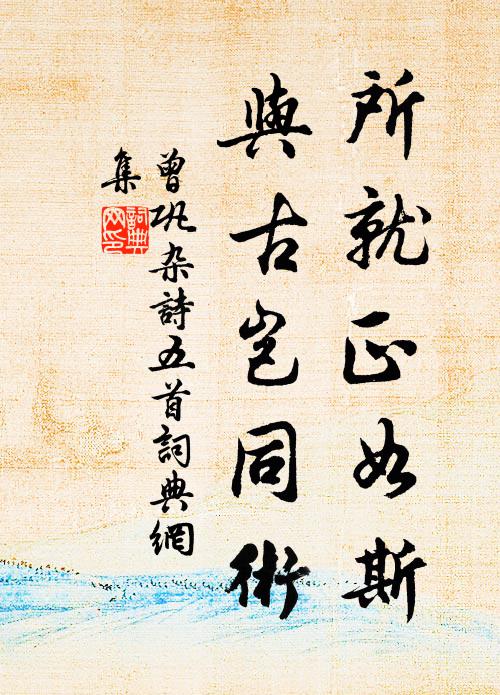 所就正如斯
與古豈同術
曾巩杂詩五首詞典網
集
詞典網印